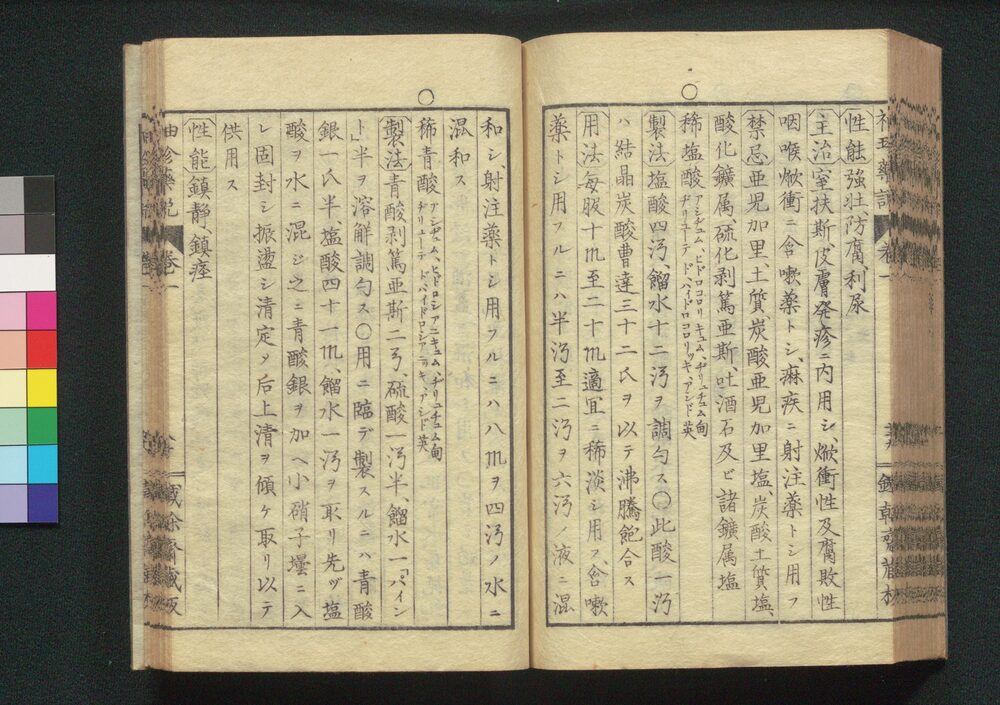 性能強壮防腐利尿
主治窒扶斯皮膚発疹ニ内用シ、焮衝性及腐敗性
咽喉焮衝ニ含嗽薬トシ、麻疾ニ射注薬トシ用フ
禁忌亜児加里土質炭酸亜児加里塩、炭酸土質塩
酸化鑛属、硫化剥篤亜斯、吐酒石及ビ諸鑛属塩
○
稀塩酸 アシヂュム、ヒドロコロリキュム、ヂリュチュム甸
ヂリューテ、ドハイドロコロリッキ、アシド英
製法塩酸四沔、餾水十二沔ヲ調匀ス〇此酸一沔
ハ結晶炭酸曹達三十二氏ヲ以テ沸騰飽合ス
用法毎服十m至二十m適宜ニ稀淡シ用フ、含嗽
薬トシ用フルニハ半沔至二沔ヲ六沔ノ液ニ混
和シ、射注薬トシ用フルニハ八mヲ四沔ノ水ニ
混和ス
○
稀青酸 アシヂュム、ヒドロシアニキュム、ヂリュチュム甸
ヂリューテ、ドハイドロシアニッキ、アシド英
製法青酸剥篤亜斯二弓、硫酸一沔半、餾水一「パイン
ト」半ヲ溶解調匀ス〇用ニ臨デ製スルニハ青酸
銀一氏半、塩酸四十一m、餾水一沔ヲ取リ先ヅ塩
酸ヲ水ニ混ジ之ニ青酸銀ヲ加ヘ小硝子壜ニ入
レ固封シ振盪シ清定メ后上清ヲ傾ケ取リ以テ
供用ス
性能鎮静、鎮痙
袖珍薬説 巻一